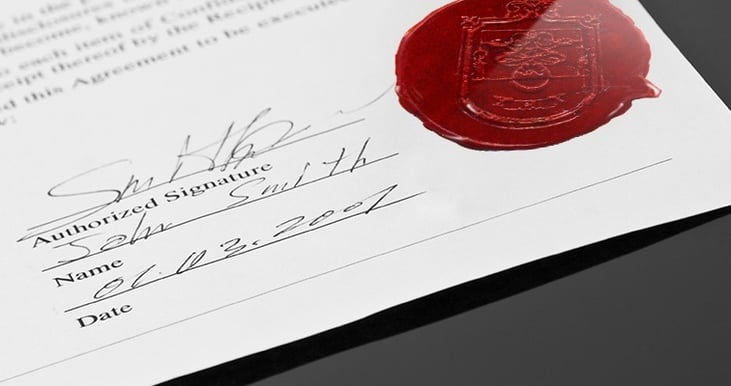 in the
disclosures
become, known
each item of Confid
eipt thereof by the Recipie
d this Agreement to be execute
y:
Smith
Authorized Signature
John Smith
Name
01.03.2001
Date